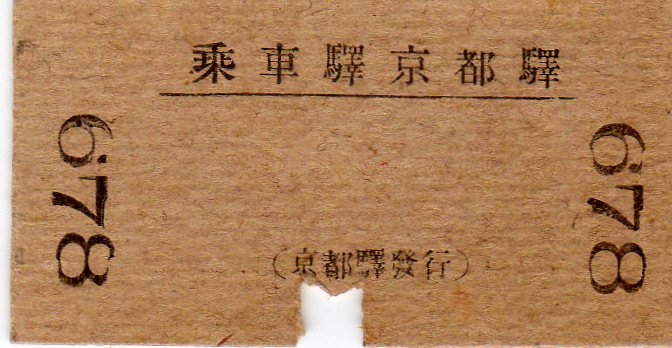 乗車驛京都驛
678
678
(京都驛發行)